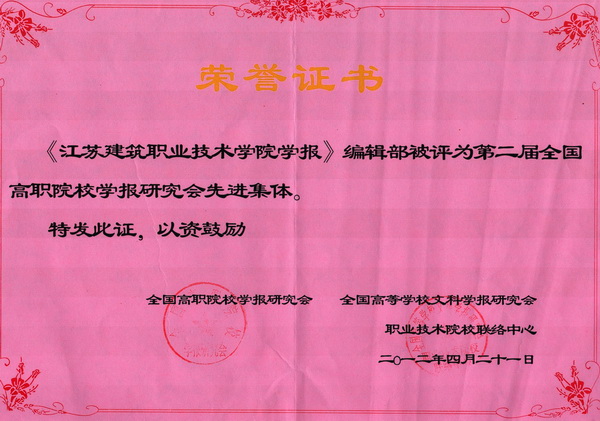 荣誉证书
《江苏建筑职业技术学院学报》编辑部被评为第二届全国
高职院校学报研究会先进集体。
特发此证，以资鼓励
全国高职院校学报研究会 全国高等学校文科学报研究会
职业技术院校联络中心
二〇一二年四月二十一日